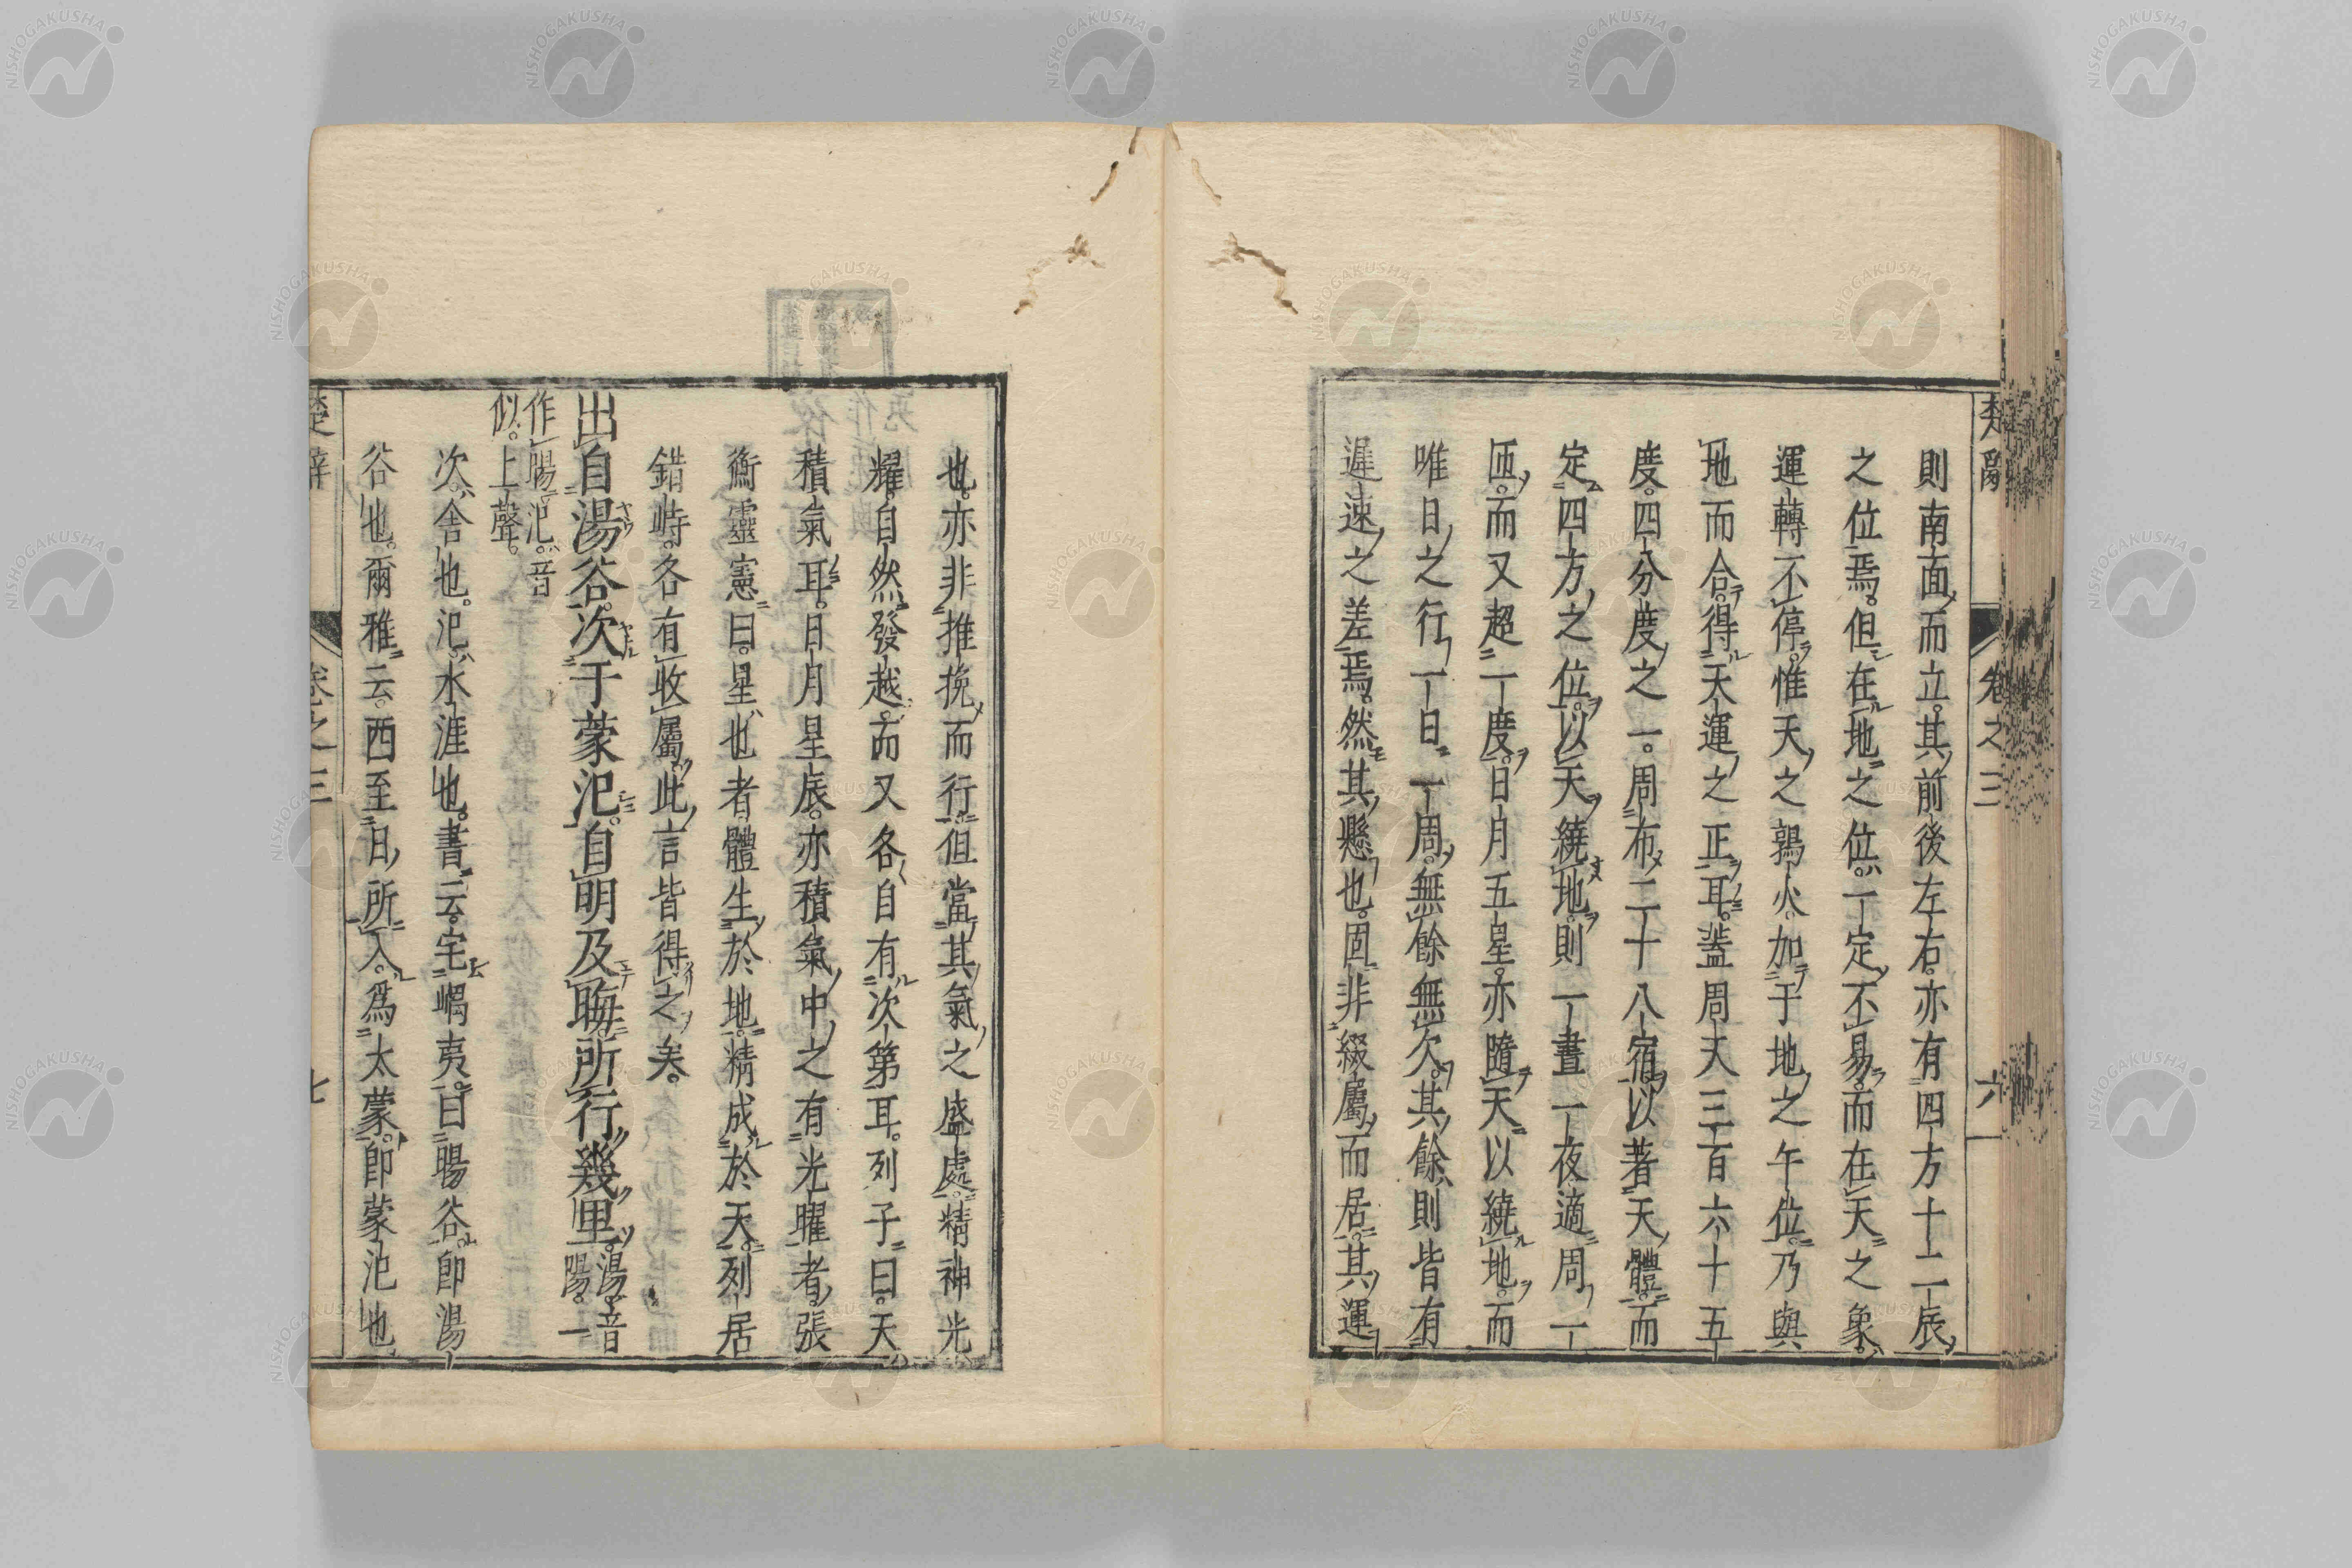 楚辭　卷之三　六
則南面而立其前後左右亦有四方十二辰
之位焉。但在地之位。一定不易。而在天之象
運轉不停。惟天之鶉火。加于地之午位。乃與
地而合。得天運之正耳。蓋周天三百六十五
度。四分度之一。周布二十八宿。以著天體。而
定四方之位。以天繞地。則一晝一夜適周一
匝。而又超一度。日月五星。亦隨天以繞地。而
唯日之行。一日一周。無餘無欠。其餘則皆有
遲速之差焉。然其懸也。固非綴屬而居。其運
也。亦非推挽而行。但當其氣之盛處。精神光
耀。自然發越。而又各自有次第耳。列子曰。天
積氣耳。日月星辰。亦積氣中之有光曜者。張
衡靈憲曰。星也者。體生於地。精成於天。列居
錯峙。各有收屬。此言皆得之矣。
出自湯谷。次于蒙汜。自明及晦。所行幾里。湯。音陽。一
作暘。汜。音似。上聲。
次。舍也。汜。水涯也。書云。宅嵎夷。曰暘谷。卽湯
谷也。爾雅云。西至日所入。爲太蒙。卽蒙汜也
楚辭　卷之三　七
NISHOGAKUSHA